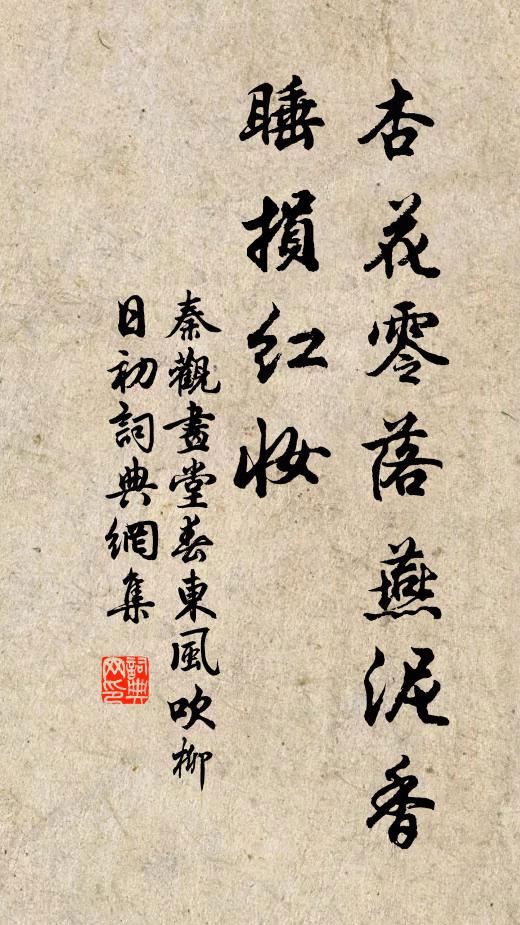 杏花零落燕泥香
睡損红妝
秦觀畫堂春東風吹柳
日初詞典網集
詞典网印